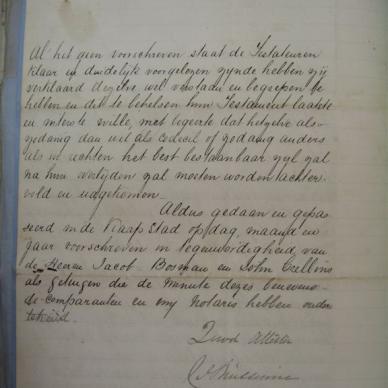 Al het geen voorschreven staat de Testateuren
klaar en duidelijk voorgelezen zynde hebben zij
verklaard dezelve wel verstaan en begrepen te
hebben en dit te behelsen hun Testament laatste
en uiterste wille, met begeerte dat hetzelve als
zodanig dan wel als Codecil of zodanig anders
als in rechten het best bestaanbaar zyl zal
na hun overlyden zal moeten worden achter
vold en nagekomen.
Aldus gedaan en gepas
seerd in de Kaap Stad op dag, maand en
jaar voorschreven in tegenwoordigheid van
de Heeren Jacob Bosman en John Collins
als getuigen die de minute dezes benevens
de comparanten en my Notaris hebben onder
tekend.
Quod Attestor